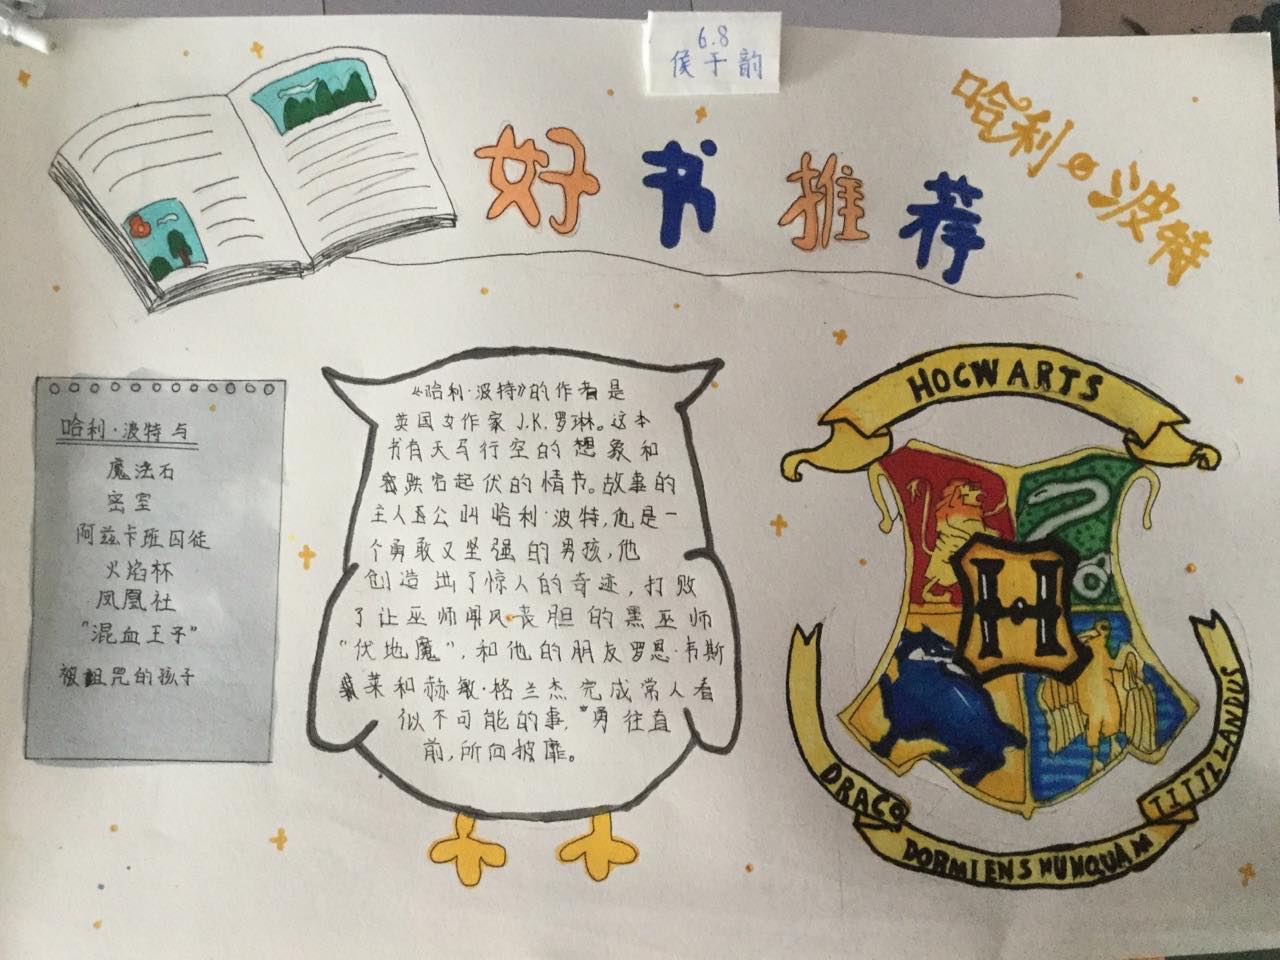 6.8
侯于韵
好书推荐
哈利·波特
哈利·波特与
魔法石
密室
阿兹卡班囚徒
火焰杯
凤凰社
"混血王子"
被诅咒的孩子
《哈利·波特》的作者是
英国女作家J.K.罗琳。这本
书有天马行空的想象和
跌宕起伏的情节。故事的
主人公叫哈利·波特,他是一
个勇敢又坚强的男孩,他
创造出了惊人的奇迹,打败
了让巫师闻风丧胆的黑巫师
"伏地魔",和他的朋友罗恩·韦斯
莱和赫敏·格兰杰完成常人看
似不可能的事,勇往直
前,所向披靡。
HOGWARTS
DRACO
DORMIENS NUNQUAM
TITILLANDUS